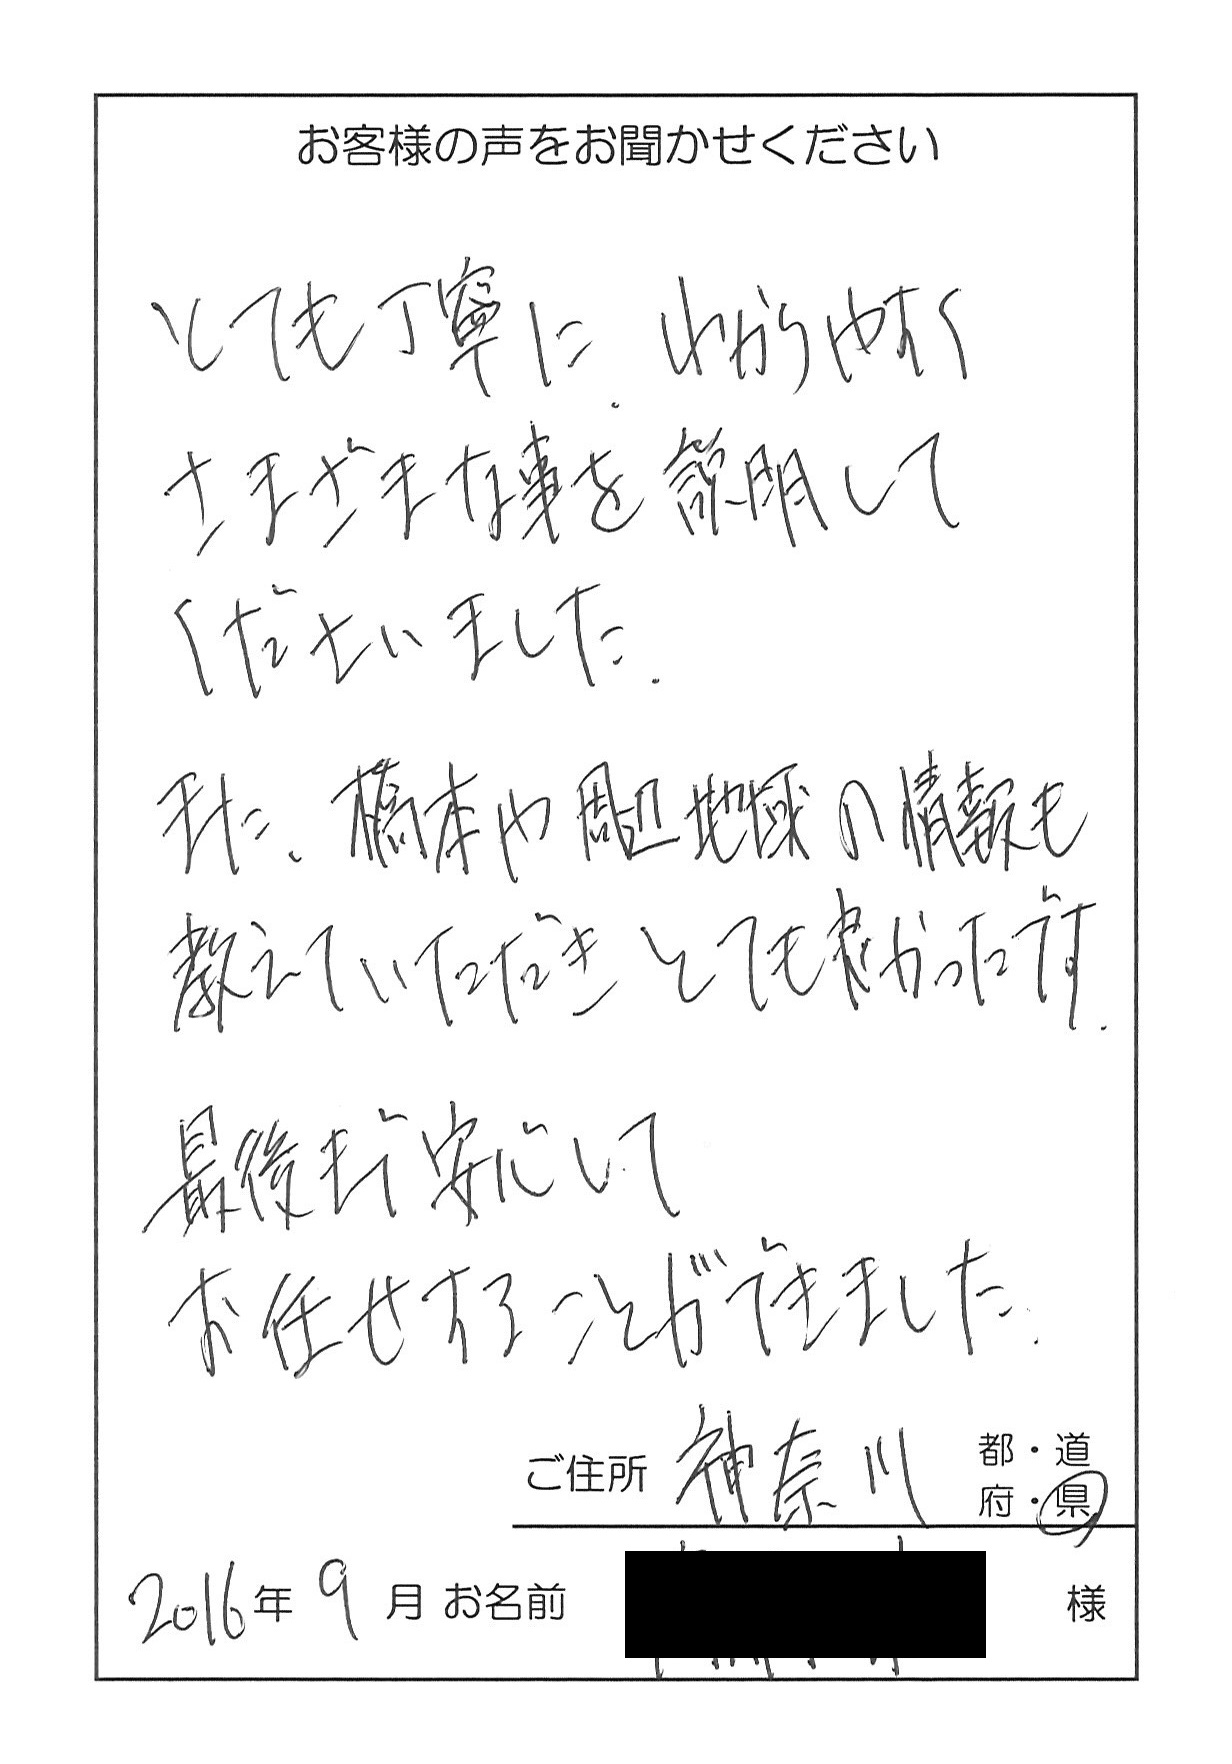 お客様の声をお聞かせください
とても丁寧に、わかりやすく
さまざまな事を説明して
くださいました。
また、橋本や周辺地域の情報も
教えていただきとても良かったです。
最後まで安心して
お任せすることができました。
ご住所 神奈川 都・道
府・県
2016年 9月 お名前 様